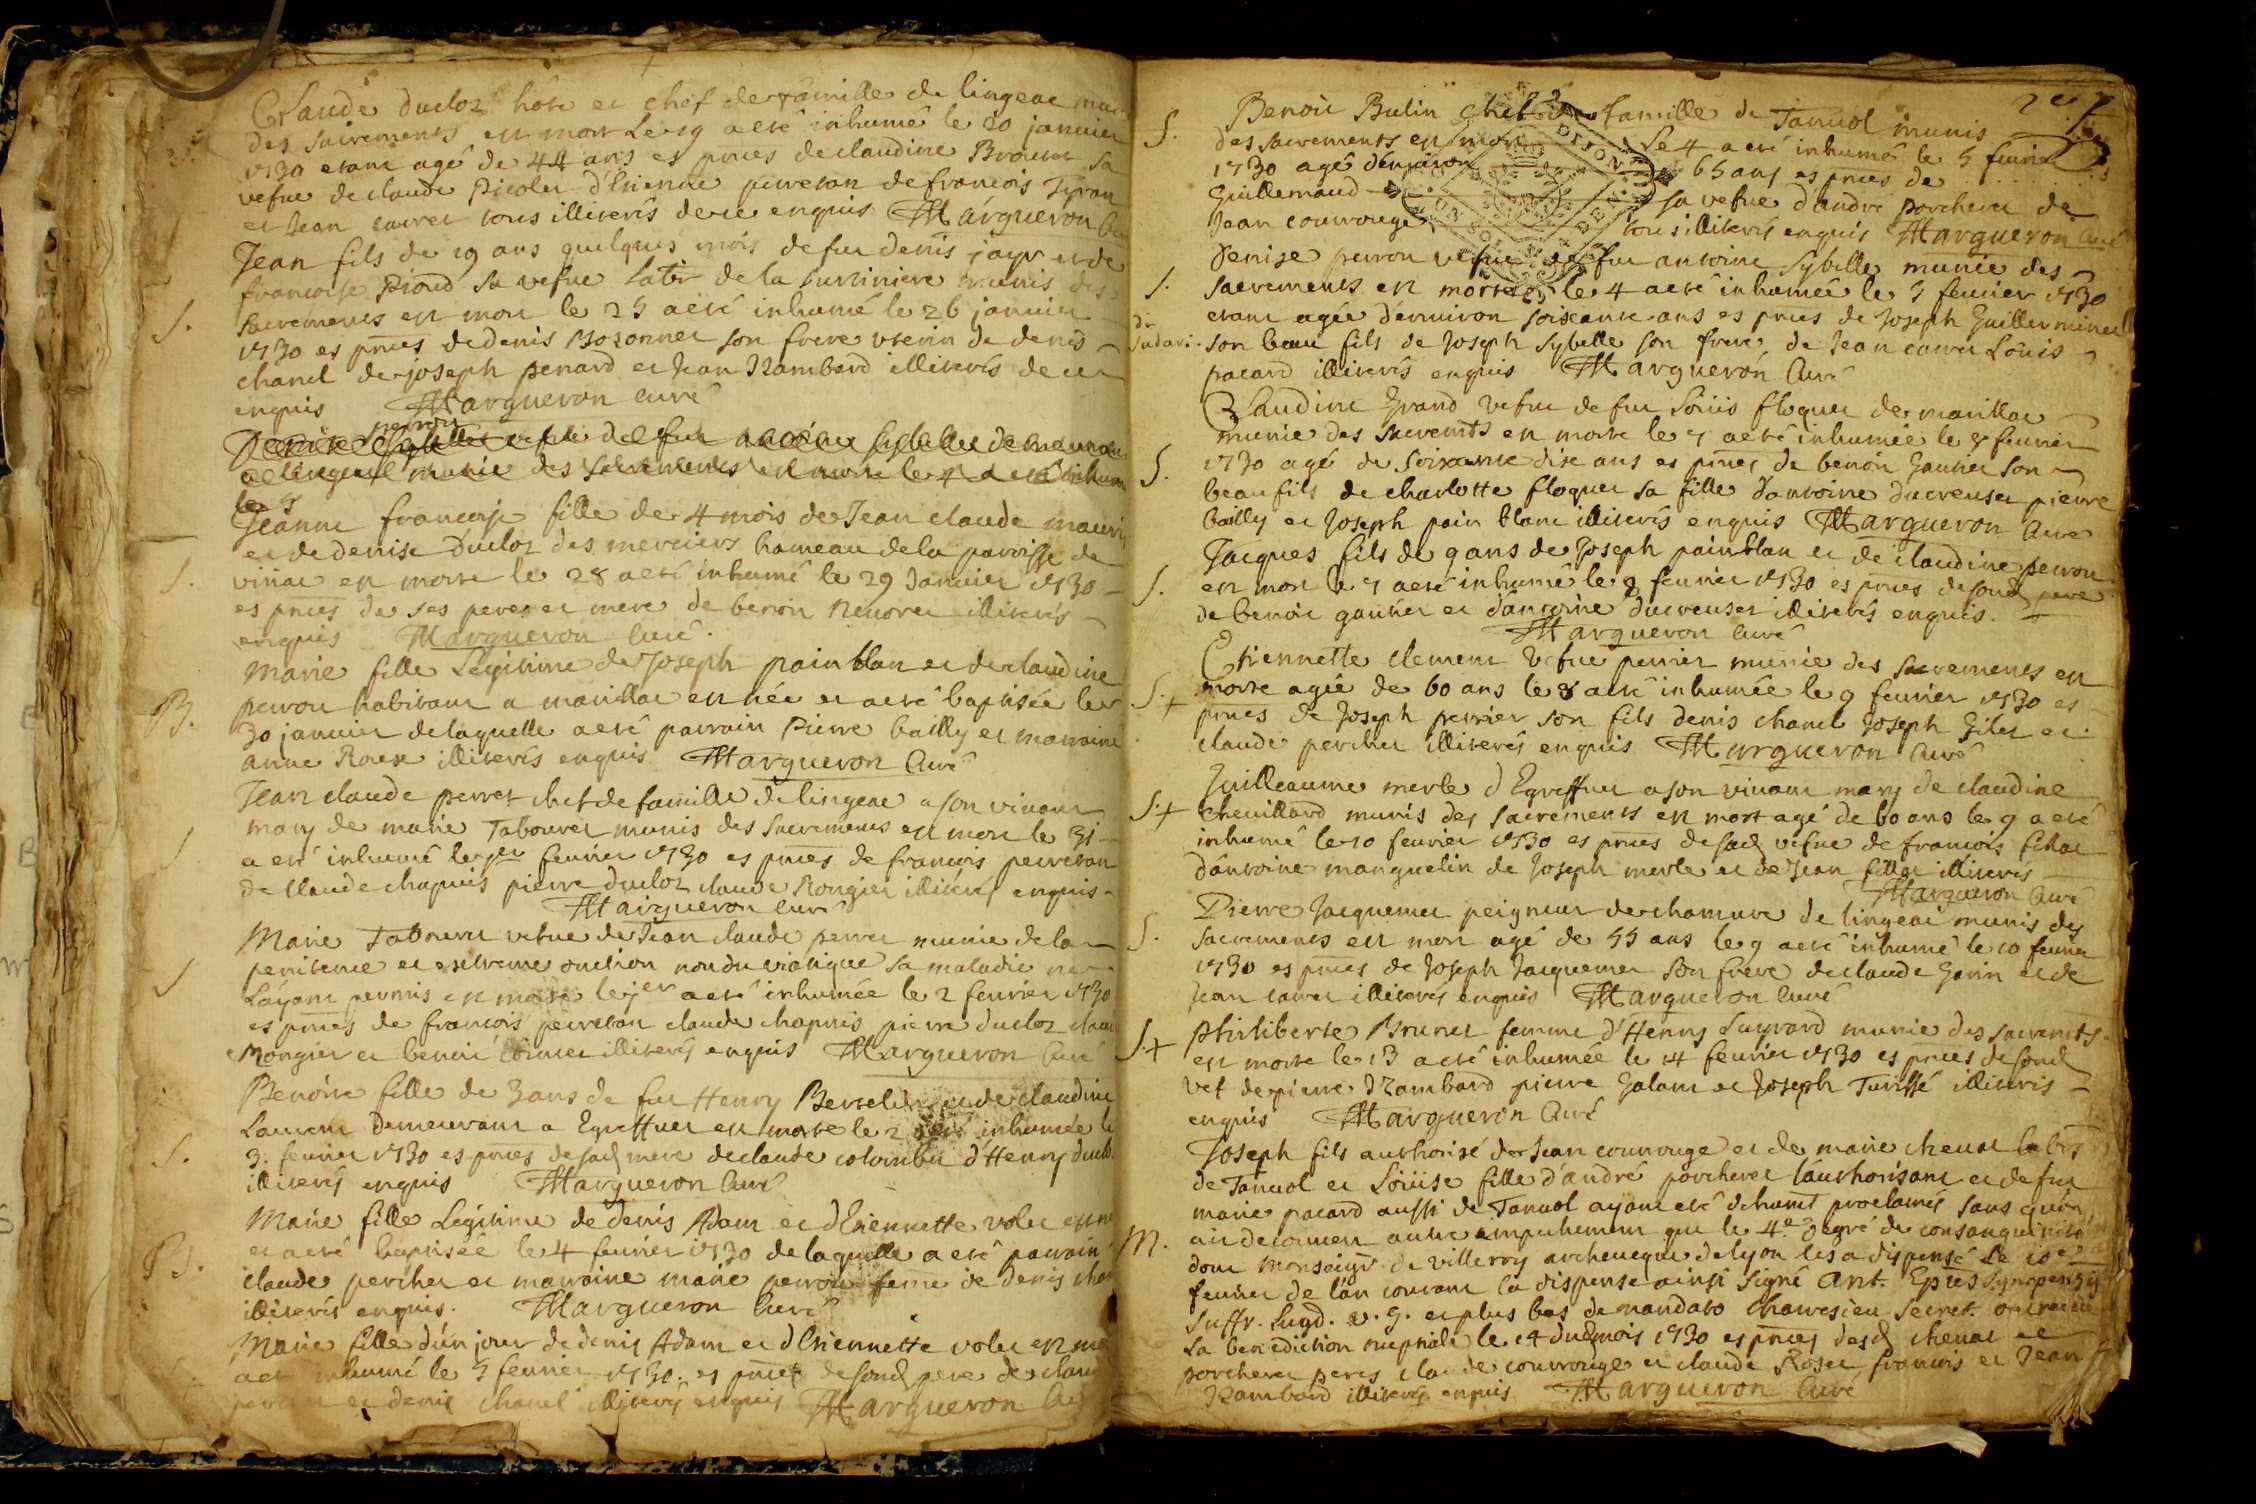 Claude ducloz hôte et chef de famille de lingeac muni
des sacrements est mort Le 19 a eté inhumé le 20 janvier
1730 etant agé de 44 ans es pnces de claudine Brouet sa
vefue de claude Picolet d'Etienne perretan de francois Tyran
et Jean carret tous illiterés de ce enquis Margueron Curé
Jean fils de 19 ans quelques mois de feu denis jayr et de
francoise Pioud sa vefue labr de la surriniere munis des
S. sacrements est mort le 25 a eté inhumé le 26 janvier
1730 es pnces de denis Mozonnet son frere uterin de denis
chanel de joseph penard et Jean Rambard illiterés de ce
enquis Margueron curé
perron
vefue de feu antoine Sybelle
munie des sacrements est morte le 4 a eté inhum
le 5
Jeanne francoise fille de 4 mois de Jean claude mauri
et de denise Ducloz des merciers hameau de la parroisse de
S. viriac est morte le 28 a eté inhumé le 29 Janvier 1730
es pnces de ses peres et mere de benoit Neuoret illiterés
enquis Margueron Curé.
Marie fille Legitime de Joseph painblan et de claudine
B. perron habitant a marillac est née et a eté baptisée le
30 janvier de laquelle a eté parrain Pierre bailly et marraine
anne Roux illiterés enquis Margueron Curé
Jean claude perret chef de famille de lingeac a son vivant
mary de marie Tabouret munis des sacrements est mort le 31
S a eté inhumé le jer feurier 1730 es pnces de francois perretan
de Claude chapuis pierre ducloz claude Rongier illiterés enquis
Margueron Curé
Marie Tabouret vefue de Jean claude perret munie de la
S penitence et extreme onction non du viatique sa maladie ne
Layant permis est morte le jer a eté inhumée le 2 feurier 1730
es pnces de francois perretan claude chapuis pierre ducloz claude
Rongier et benoit illiterés enquis Margueron Curé
Benoite fille de 3 ans de feu Henry Bertelin et de claudine
Laurent Demeurant a Egreffuet est morte le 2 a eté inhumée le
S. 3. feurier 1730 es pnces de sad mere de claude colombet d'Henry duclo
illiterés enquis Margueron Curé
Marie fille Legitime de denis Adam et d'Etiennette volet est né
B. et a eté baptisée le 4 feurier 1730 de laquelle a eté parrain
claude percher et marraine marie perron feme de denis chan
illiterés enquis. Margueron Curé
Marie fille d'un jour de denis Adam et d'Etiennette volet est mo
a eté inhumé le 5 feurier 1730. es pnces de sond pere de claud
percher et denis chanel illiterés enquis Margueron Curé
Benoit Bulin chef de famille de Tanuol munis
S. des sacrements est mort Le 4 a eté inhumé le 5 feurier
1730 agé d'enuiron 65 ans es pnces de
Guillemaud sa vefue d'andre porcheret de
Jean courrouge tous illiterés enquis Margueron Curé
DIJON
Denise perron vefue de feu antoine Sybelle munie des
S. sacrements est morte le 4 a eté inhumée le 5 feurier 1730
etant agée d'enuiron soixante ans es pnces de Joseph Guillerminet
son beau fils de Joseph Sybelle son frere de Jean carret Loüis
pacard illiterés enquis Margueron Curé
Claudine Grand vefue de feu Loüis floquet de marillac
munie des sacremts est morte le 7 a eté inhumée le 8 feurier
S. 1730 agé de soixante dixe ans es pnces de benoit Gautier son
beau fils de charlotte floquet sa fille d'antoine ducreuset pierre
bailly et Joseph pain blanc illiterés enquis Margueron Curé
Jacques fils de 9 ans de Joseph painblan et de claudine perron
S. est mort le 7 a eté inhumé le 8 feurier 1730 es pnces de sond pere
de benoit gautier et d'antoine ducreuset illiterés enquis.
Margueron Curé
Etiennette clement vefue perrier munie des sacrements est
S. + morte agée de 60 ans le 8 a eté inhumée le 9 feurier 1730 es
pnces de Joseph perrier son fils denis chanel Joseph Gilet et
claude percher illiterés enquis Margueron Curé
Guilleaume merle d'Egreffuet a son vivant mary de claudine
S. + Cheuillard munis des sacrements est mort agé de 60 ans le 9 a eté
inhumé le 10 feurier 1730 es pnces de sad vefue de francois
d'antoine manguelin de Joseph merle et de Jean illiterés
Margueron Curé
Pierre Jacquemet peigneur de chanure de lingeac munis des
S. sacrements est mort agé de 55 ans le 9 a eté inhumé le 10 feurier
1730 es pnces de Joseph Jacquemet son frere de claude Garin et de
Jean carret illiterés enquis Margueron Curé
S. + Philiberte Brunet femme d'Henry Suyrard munie des sacremts
est morte le 13 a eté inhumée le 14 feurier 1730 es pnces de sond
vef de pierre Rambard pierre Galant et Joseph Turissé illiterés
enquis Margueron Curé
Joseph fils authorisé de Jean courrouge et de marie cheuat labrs
de Tanuol et Loüise fille d'andré porcheret l'authorisant et de feu
marie pacard aussi de Tanuol ayant eté dehumt proclamés sans qu'on
M. ait decouuert autre empechement que le 4e degré de consanguinité
dont monseigr de villeroy archeueque de lyon les a dispensé le 10e
feurier de l'an courant la dispense ainsi signé Ant. Epus Synopensis
suffr. Lugd. v. g. et plus bas de mandato secret. ont receu
La benediction nuptiale le 14 dud mois 1730 es pnces desd cheuat et
porcheret peres claude courrouge et claude Roset francois et Jean
Rambard illiterés enquis Margueron Curé